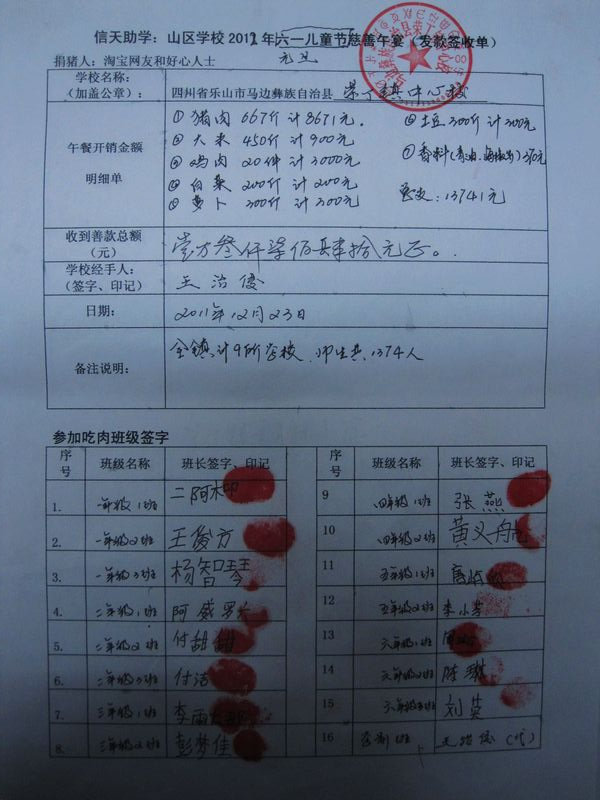 信天助学：山区学校2012年六一儿童节慈善午宴（发款签收单）
元旦
捐猪人：淘宝网友和好心人士
学校名称：
（加盖公章）：
四川省乐山市马边彝族自治县 荣丁镇中心校
午餐开销金额
明细单
① 猪肉 667斤 计8671元.
② 大米 450斤 计900元
③ 鸡肉 20件 计3000元
④ 白菜 200斤 计200元
⑤ 萝卜 300斤 计300元
⑥ 土豆 300斤 计300元
⑦ 香料 370元
总支：13741元
收到善款总额
（元）
壹万叁仟柒佰肆拾元正。
学校经手人：
（签字、印记）
王治俊
日期：
2011年12月23日
备注说明：
全镇计9所学校，师生共1374人
参加吃肉班级签字
序号 班级名称 班长签字、印记
1. 一年级1班 二阿木
2. 一年级2班 王俊方
3. 一年级3班 杨智琴
4. 二年级1班 阿威罗
5. 二年级2班 付甜甜
6. 二年级3班 付洁
7. 三年级1班 李雨
8. 三年级2班 彭梦佳
序号 班级名称 班长签字、印记
9 四年级1班 张燕
10 四年级2班 黄义
11 五年级1班
12 五年级2班 李小芳
13 六年级1班
14 六年级2班 陈琳
15 六年级3班 刘英
16 王治俊（代）